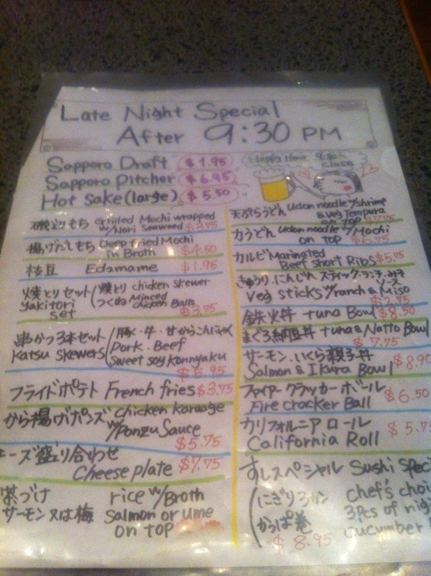 Late Night Special
After 9:30 PM
Sapporo Draft $1.95
Sapporo Pitcher $6.95
Hot sake (large) $5.50
Happy Hour
close
磯辺もち Grilled Mochi wrapped
w/Nori Seaweed
揚げだしもち Deep fried Mochi
in Broth $4.50
枝豆 Edamame $1.95
焼とりセット 焼とり chicken skewer
yakitori つくね Minced chicken Balls
set $3.75
串かつ3本セット 豚・牛・甘からこんにゃく
Katsu skewers Pork・Beef
Sweet soy konnyaku
フライドポテト French fries $3.75
から揚げポンズ Chicken karaage
w/Ponzu Sauce
$5.75
ーズ盛り合わせ
Cheese plate $7.75
茶づけ rice w/Broth
サーモン又は梅 Salmon or Ume
on top
天ぷらうどん Udon noodle w/Shrimp
& veg Tempura
on top
力うどん Udon noodle w/Mochi
on top
カルビ Marinated
Beef Short Ribs $5.75
きゅうり、にんじん スティック
Veg sticks w/ranch & Miso
鉄火丼 tuna Bowl $8.50
まぐろ納豆丼 tuna & Natto Bowl
$7.75
サーモン、いくら親子丼
Salmon & Ikura Bowl
ファイアークラッカーボール
Fire cracker Ball $6.50
カリフォルニアロール
California Roll $5.7
すしスペシャル Sushi Spec
にぎり3カン Chef's choi
かっぱ巻 3pcs of nig
cucumber
$8.95